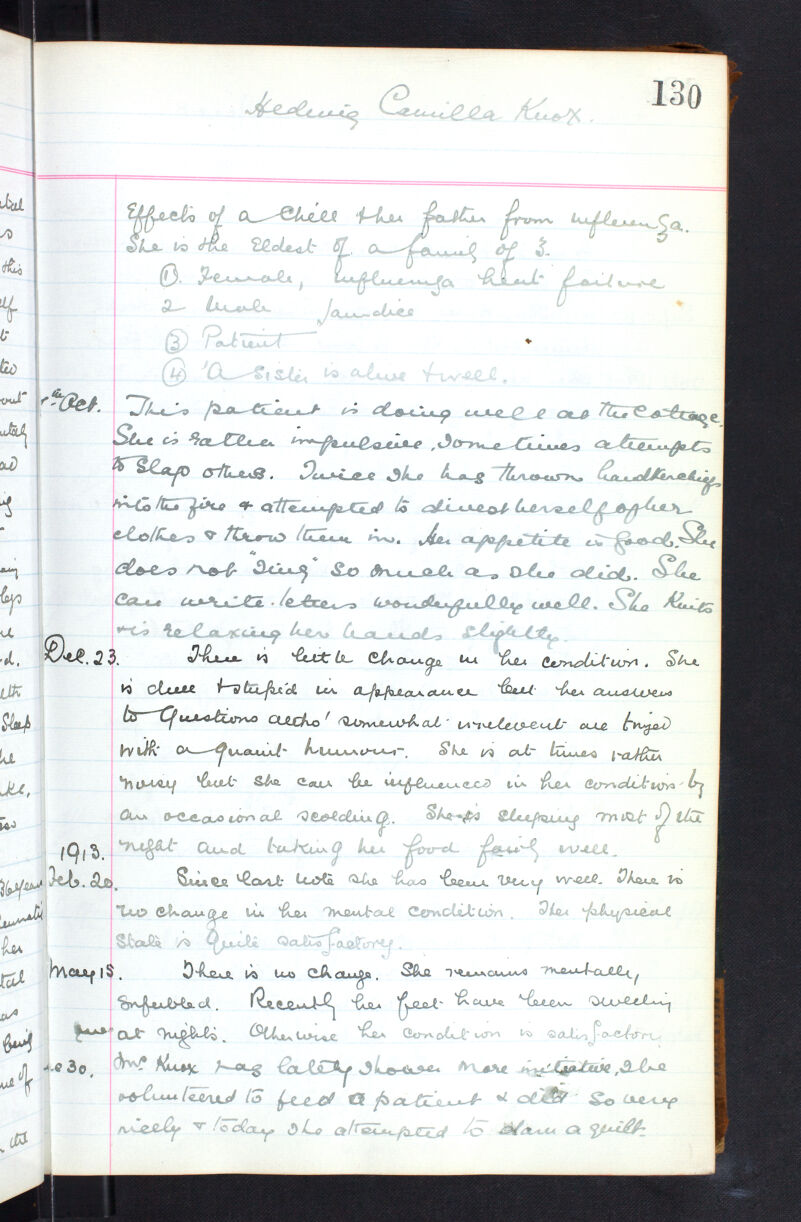 130
Hedwig Camilla Knox.
Effects of a chill & her father from influenza.
She is the Eldest of a family of 3.
① Female, influenza heart failure
2 Male Jaundice
③ Patient
④ 'A sister is alive & well.
Oct. This patient is doing well at the Cottage.
She is rather impulsive, sometimes attempts
to slap others. Twice she has thrown handkerchiefs
into the fire & attempted to divest herself of her
clothes & throw them in. Her appetite is good. She
does not "sing" so much as she did. She
can write letters wonderfully well. She Knits
& is relaxing her hands slightly.
Dec. 23. There is little change in her condition. She
is dull & stupid in appearance but her answers
to Questions altho' somewhat irrelevent are tinged
with a quaint humour. She is at times rather
noisy but she can be influenced in her condition by
an occasional scolding. She is sleeping most of the
night and taking her food fairly well.
1913.
Feb. 20. Since last note she has been very well. There is
no change in her mental condition. Her physical
state is Quite satisfactory.
May 15. There is no change. She remains mentally
enfeebled. Recently her feet have been swelling
at nights. Otherwise her condition is satisfactory
30. Knox has lately shown more initiative, she
volunteered to feed a patient & did so very
nicely & today she attempted to darn a quilt.